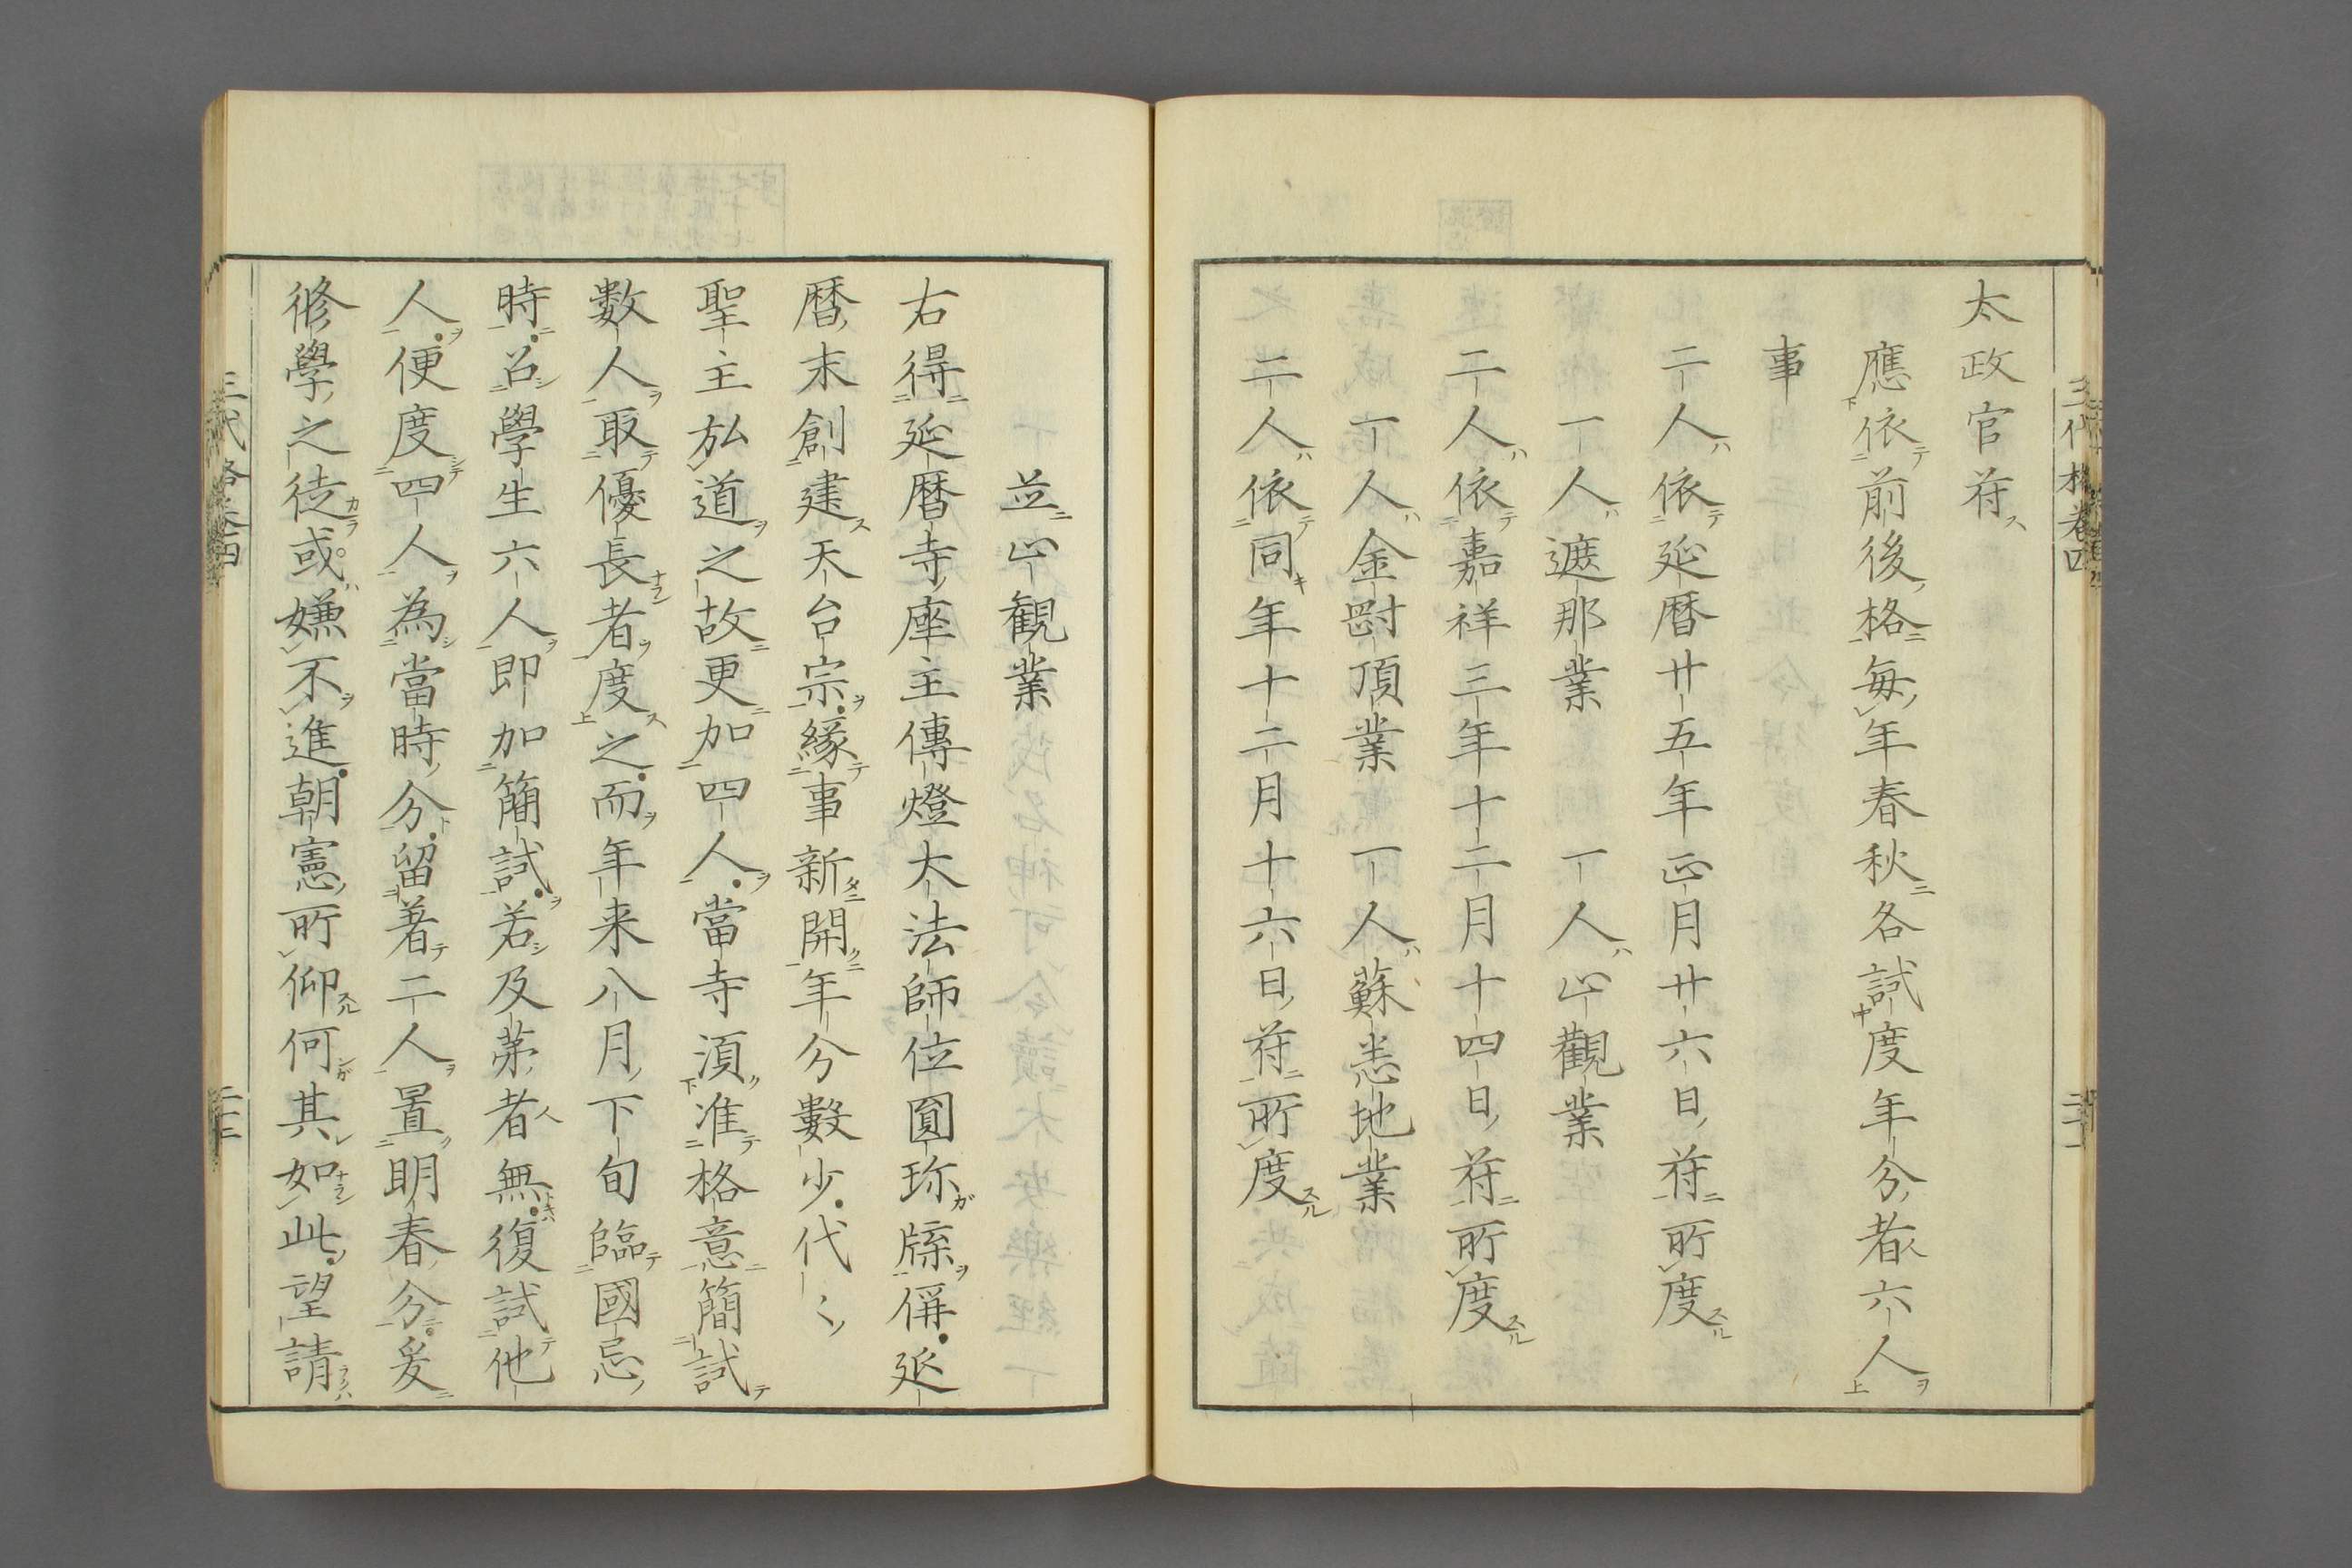 太政官苻
應依前後格毎年春秋各試度年分者六人
事
二人依延暦廿五年正月廿六日苻所度
一人遮那業　一人止觀業
二人依嘉祥三年十二月十四日苻所度
一人金剛頂業　一人蘇悉地業
二人依同年十二月十六日苻所度
並止観業
右得延暦寺座主傳燈大法師位圓珎牒偁延
暦末創建天台宗緣事新開年分數少代〻
聖主弘道之故更加四人當寺湏准格意簡試
數人取優長者度之而年来八月下旬臨國忌
時召學生六人即加簡試若及苐者無復試他
人便度四人為當時分留著二人置明春分爰
修學之徒或嫌不進朝憲所仰何其如此望請
三代格卷四
二十一
三代格卷四
二十二